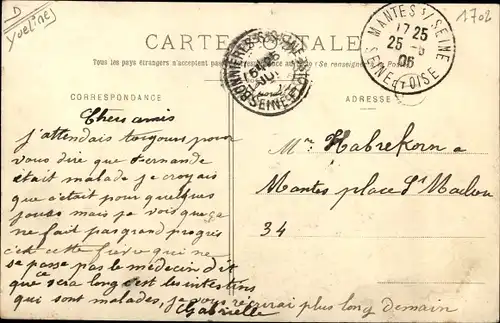 D
Yvelines
1702
CARTE POSTALE
Tous les pays étrangers n'acceptent pas la correspondance au (Se renseigner
CORRESPONDANCE
ADRESSE
BONNIERES-S-SEINE
SEINE-ET-OISE
MANTES S/ SEINE
17 25
25 -6
06
SEINE ET OISE
Chers amis
j'attendais toujours pour
vous dire que Fernande
était malade je croyais
que c'était pour quelques
jours mais je vois que ça
ne fait pas grand progrès
c'est cette fièvre qui ne
se passe pas le médecin dit
que ce sera long c'est les intestins
qui sont malades, je vous écrirai plus long demain
Gabrielle
Mr Habrekorn a
Mantes place St Maclou
34